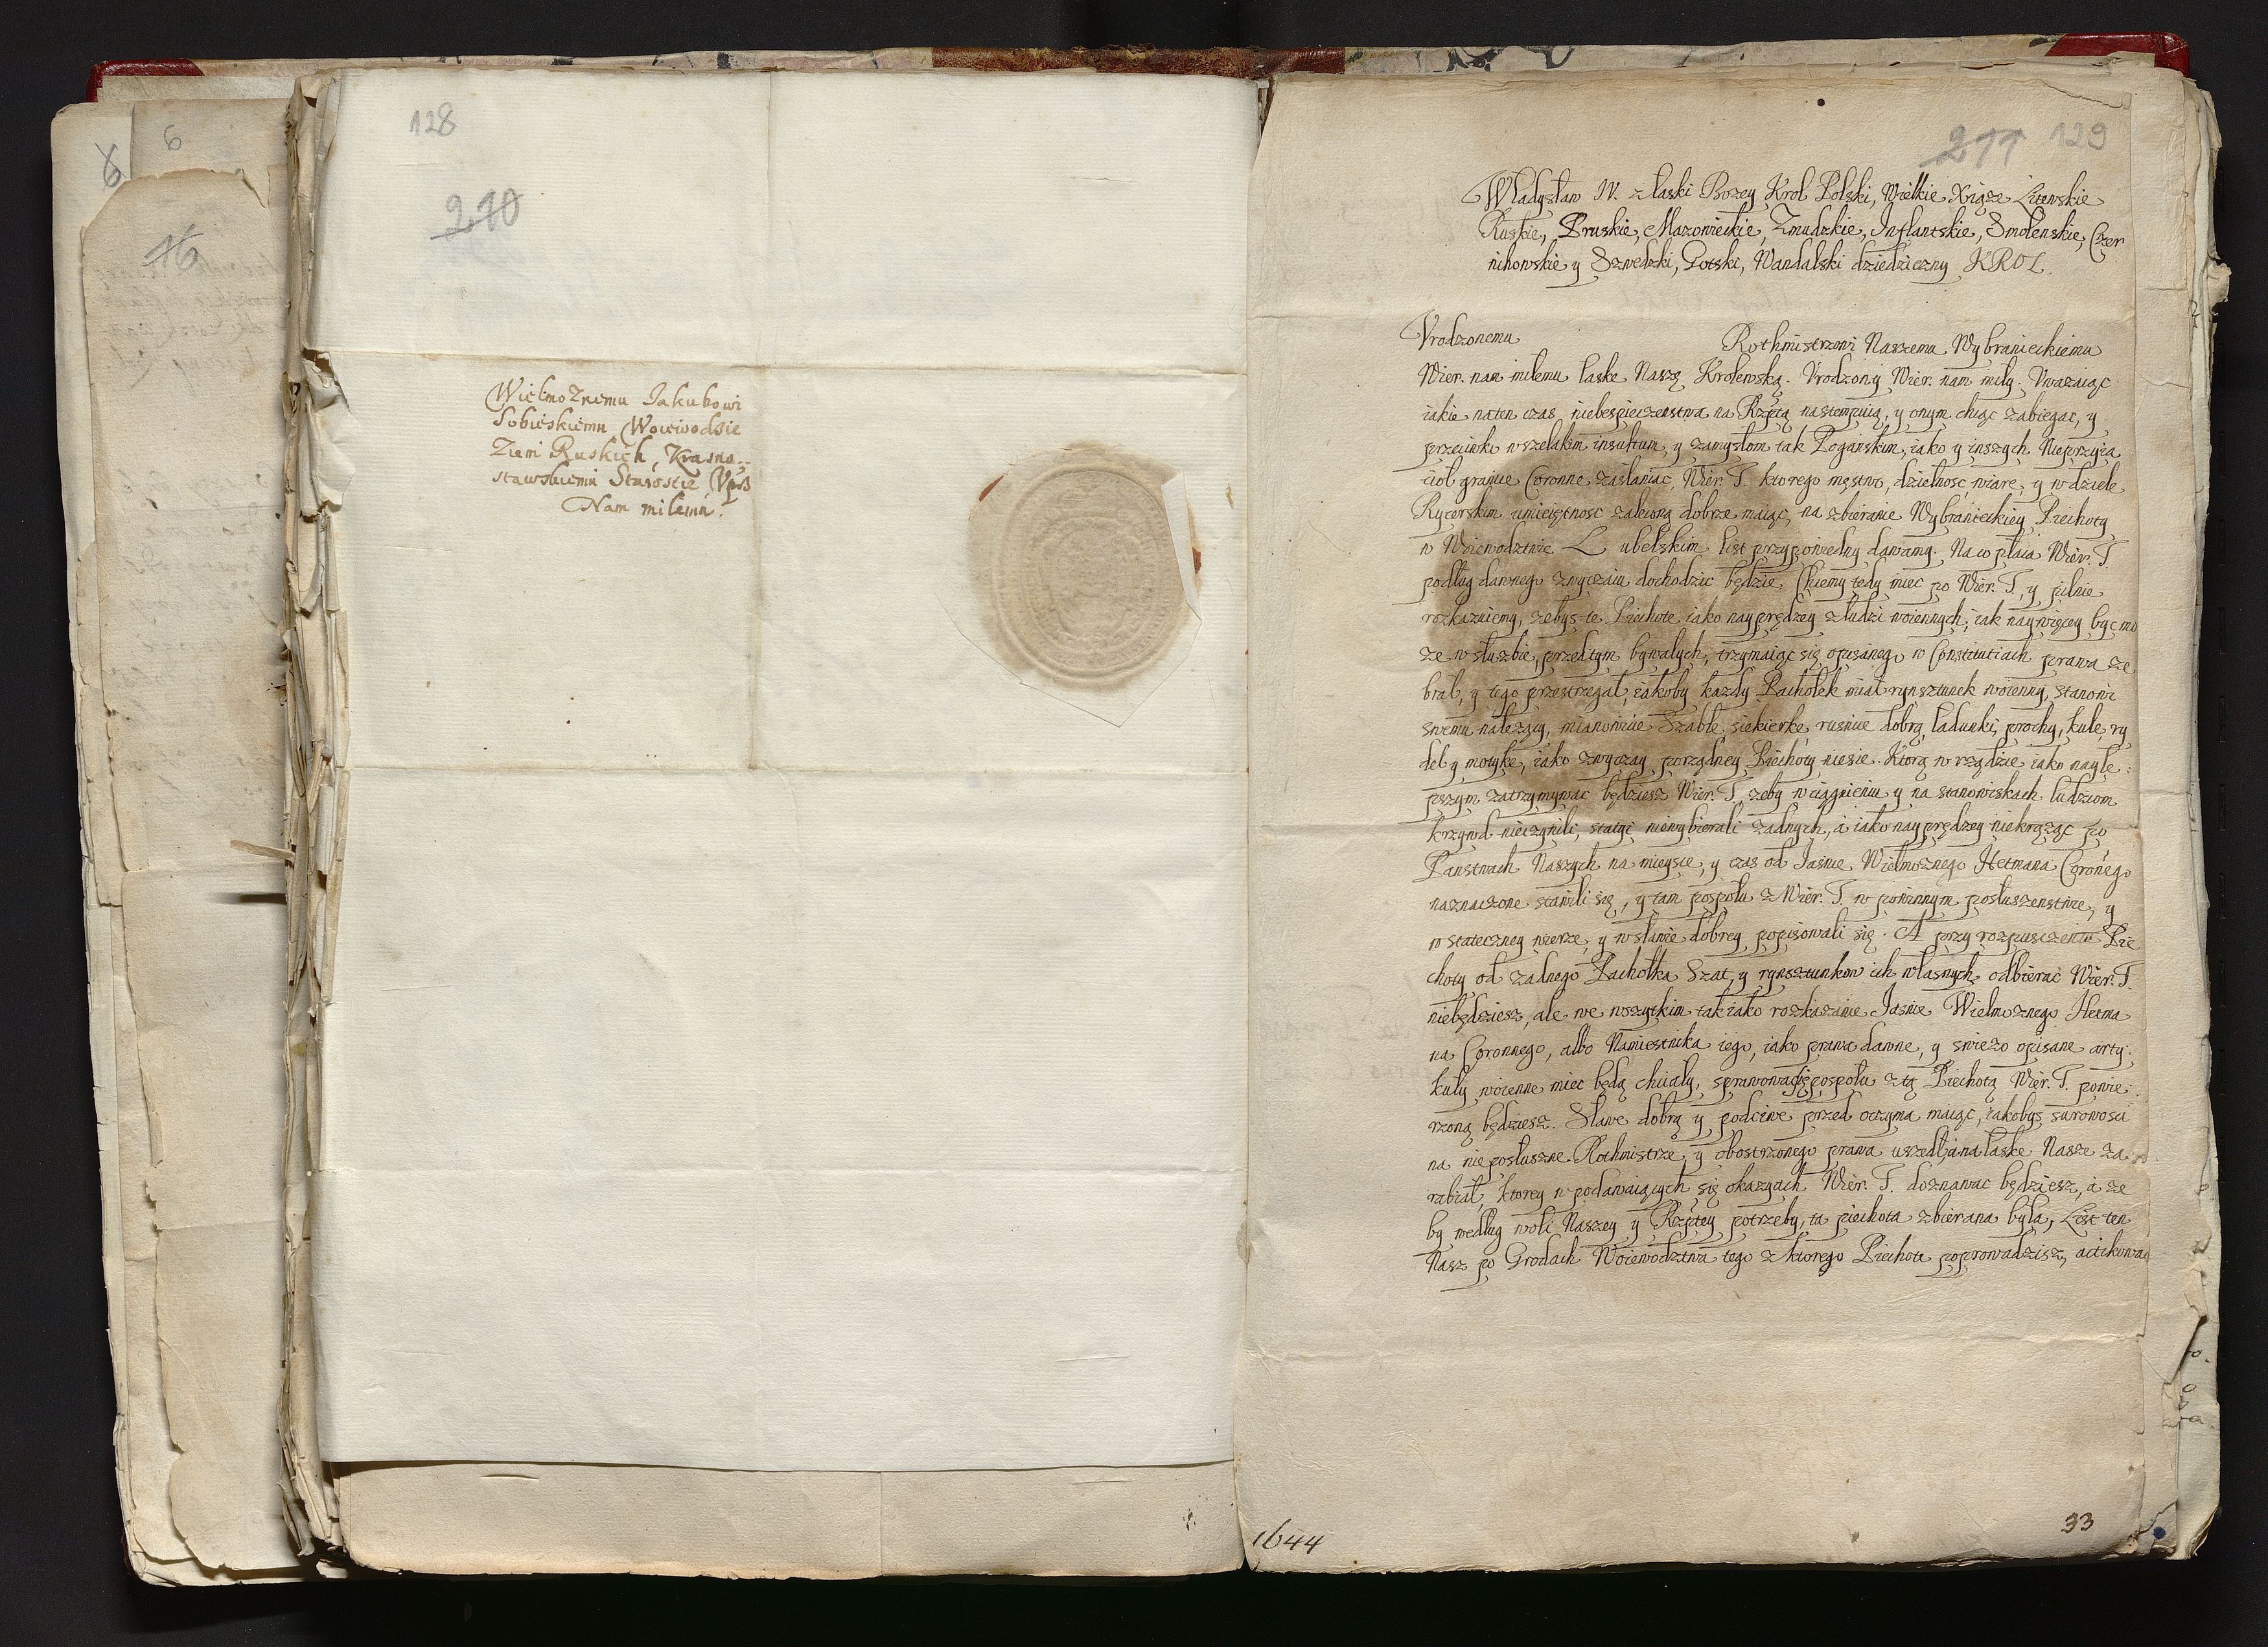 6
6
16
128
210
Wielmożnemu Jakubowi
Sobieskiemu Woiewodzie
Ziem Ruskich, Krasno..
stawskiemu Staroscie, Vprz
Nam miłemu.
211 129
Władysław IV. z łaski Bozey Krol Polski, Wielkie Xiąze Litewskie
Ruskie, Pruskie, Mazowieckie, Zmudzkie, Inflantskie, Smolenskie, Czer
nihowskie y Szwedzki, Gotski, Wandalski dziedziczny KROL.
Vrodzonemu Rothmistrzowi Naszemu Wybranieckiemu
Wier. nam miłemu łaske Naszą Krolewską. Vrodzony Wier. nam miły. Vwazaiąc
iakie na ten czas niebespieczenstwa na Rzptą nastempuią, y onym chcąc zabiegac, y
przeciwko wszelakim insultum, y zamysłom tak Poganskim, iako y inszych Nieprzyia
cioł granice Coronne zasłaniac, Wier. T. ktorego męstwo, dzielnosc, wiare, y w dziele
Rycerskim umieiętnosc zaleconą dobrze maiąc, na zbieranie Wybranieckiey Piechoty
w Woiewodztwie Lubelskim list przypowiedny dawamy. Na co płaca Wier. T.
podług dawnego zwyczaiu dochodzic będzie. Chcemy tedy miec po Wier. T. y pilnie
rozkazuiemy, zebys te Piechote iako nayprędzey z ludzi woiennych, iak naywięcey byc mo
ze w służbie, przedtym bywałych, trzymaiąc się opisanego w Constitutiach prawa ze
brał, y tego przestrzegał, iakoby kazdy Pachołek miał rynsztunek woienny, stanowi
swemu nalezący, mianowicie Szable, siekierke, rusnice dobrą, ładunki, prochy, kule, ry
del y motyke, iako zwyczay porządney Piechoty niesie. Ktorą w rządzie iako nayle:
pszym zatrzymywac będziesz Wier. T. zeby w ciągnieniu y na stanowiskach ludziom
krzywd nieczynili, statgi niewybierali zadnych, a iako nayprędzey niekrąząc po
Panstwach Naszych na mieysce, y czas od Jasnie Wielmoznego Hetmana Coronego
naznaczone stawili się, y tam pospołu z Wier. T. w powinnym posłuszenstwie, y
w stateczney wierze, y w sławie dobrey popisowali się. A przy rozpuszczeniu Pie
choty od zadnego Pachołka Szat, y rynsztunkow ich własnych odbierac Wier. T.
niebędziesz, ale we wszytkim tak iako rozkazanie Jasnie Wielmoznego Hetma
na Coronnego, albo Namiestnika iego, iako prawa dawne, y swiezo opisane arty:
kuły woienne miec będą chciały, sprawowac się pospołu z tą Piechotą Wier. T. powie:
rzoną będziesz. Sławe dobrą y podciwe przed oczyma maiąc, iakobys surowosci
na nieposłuszne Rothmistrze y obostrzonego prawa uszedł, a na łaske Nasze za
rabiał, ktorey w podawaiących się okazyach Wier. T. doznawac będziesz, a ze
by według woli Naszey y Rzptey potrzeby, ta piechota zbierana była, List ten
Nasz po Grodach Woiewodztwa tego z ktorego Piechote poprowadzisz, actikowac
1644
33